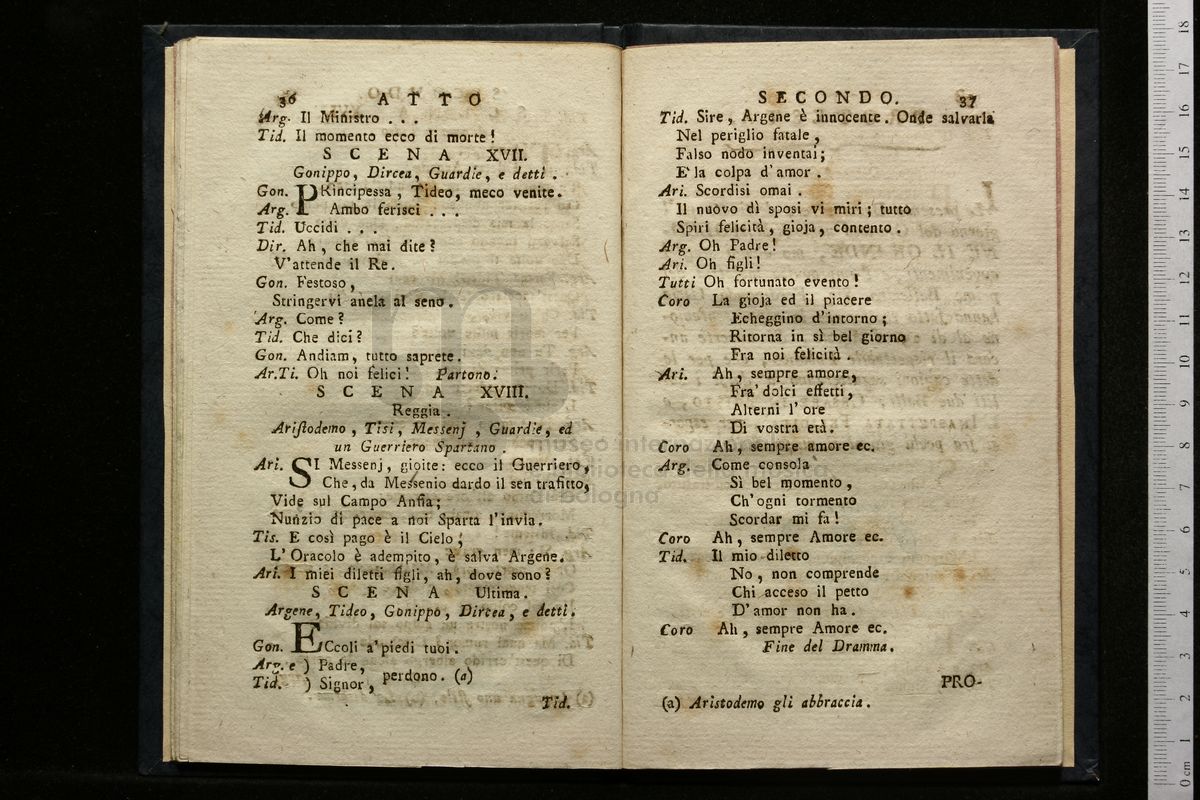 36 ATTO
Arg. Il Ministro . . .
Tid. Il momento ecco di morte!
SCENA XVII.
Gonippo, Dircea, Guardie, e detti.
Gon. PRincipessa, Tideo, meco venite.
Arg. Ambo ferisci . . .
Tid. Uccidi . . .
Dir. Ah, che mai dite?
V'attende il Re.
Gon. Festoso,
Stringervi anela al seno.
Arg. Come?
Tid. Che dici?
Gon. Andiam, tutto saprete.
Ar.Ti. Oh noi felici! Partono.
SCENA XVIII.
Reggia.
Aristodemo, Tisi, Messenj, Guardie, ed
un Guerriero Spartano.
Ari. SI Messenj, gioite: ecco il Guerriero,
Che, da Messenio dardo il sen trafitto,
Vide sul Campo Anfia;
Nunzio di pace a noi Sparta l'invia.
Tis. E così pago è il Cielo;
L'Oracolo è adempito, è salva Argene.
Ari. I miei diletti figli, ah, dove sono?
SCENA Ultima.
Argene, Tideo, Gonippo, Dircea, e detti.
Gon. ECcoli a'piedi tuoi.
Arg. e ) Padre,
Tid. ) Signor, perdono. (a)
Tid.
SECONDO. 37
Tid. Sire, Argene è innocente. Onde salvarla
Nel periglio fatale,
Falso nodo inventai;
E' la colpa d'amor.
Ari. Scordisi omai.
Il nuovo dì sposi vi miri; tutto
Spiri felicità, gioja, contento.
Arg. Oh Padre!
Ari. Oh figli!
Tutti Oh fortunato evento!
Coro La gioja ed il piacere
Echeggino d'intorno;
Ritorna in sì bel giorno
Fra noi felicità.
Ari. Ah, sempre amore,
Fra' dolci effetti,
Alterni l'ore
Di vostra età.
Coro Ah, sempre amore ec.
Arg. Come consola
Sì bel momento,
Ch'ogni tormento
Scordar mi fa!
Coro Ah, sempre Amore ec.
Tid. Il mio diletto
No, non comprende
Chi acceso il petto
D'amor non ha.
Coro Ah, sempre Amore ec.
Fine del Dramma.
PRO-
(a) Aristodemo gli abbraccia.
museo internazionale
e biblioteca della musica
di bologna
18
17
16
15
14
13
12
11
10
9
8
7
6
5
4
3
2
1
0 cm